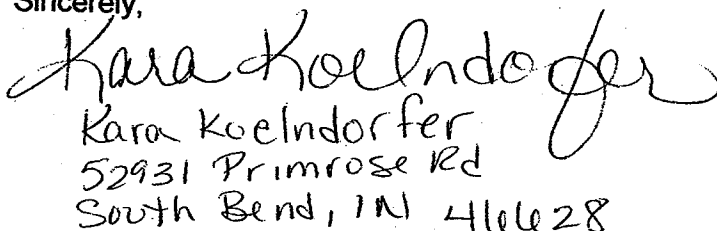 Sincerely,
Kara Koelndorfer
Kara Koelndorfer
52931 Primrose Rd
South Bend, IN 46628